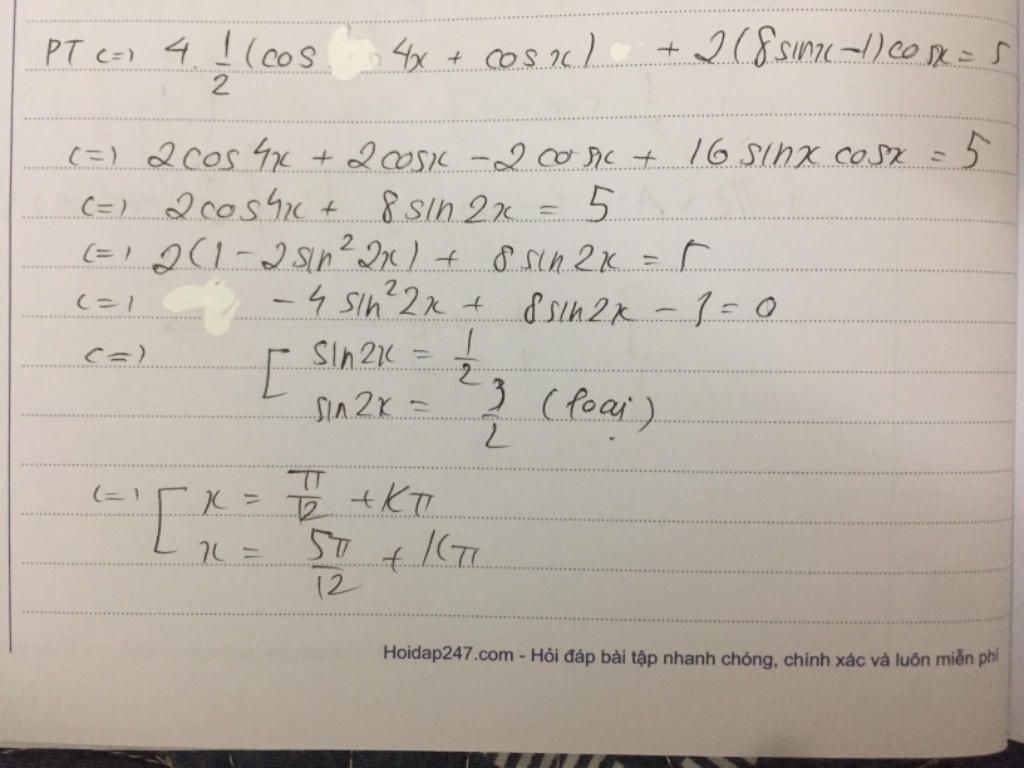 PT <=> 4. 1/2 (cos 4x + cosx) + 2(8sinx-1)cosx = 5
<=> 2cos4x + 2cosx - 2cosx + 16 sinx cosx = 5
<=> 2cos4x + 8sin2x = 5
<=> 2(1-2sin²2x) + 8sin2x = 5
<=> -4sin²2x + 8sin2x - 3 = 0
<=> [ sin2x = 1/2
sin2x = 3/2 (loại)
<=> [ x = π/12 + Kπ
x = 5π/12 + Kπ
Hoidap247.com - Hỏi đáp bài tập nhanh chóng, chính xác và luôn miễn phí